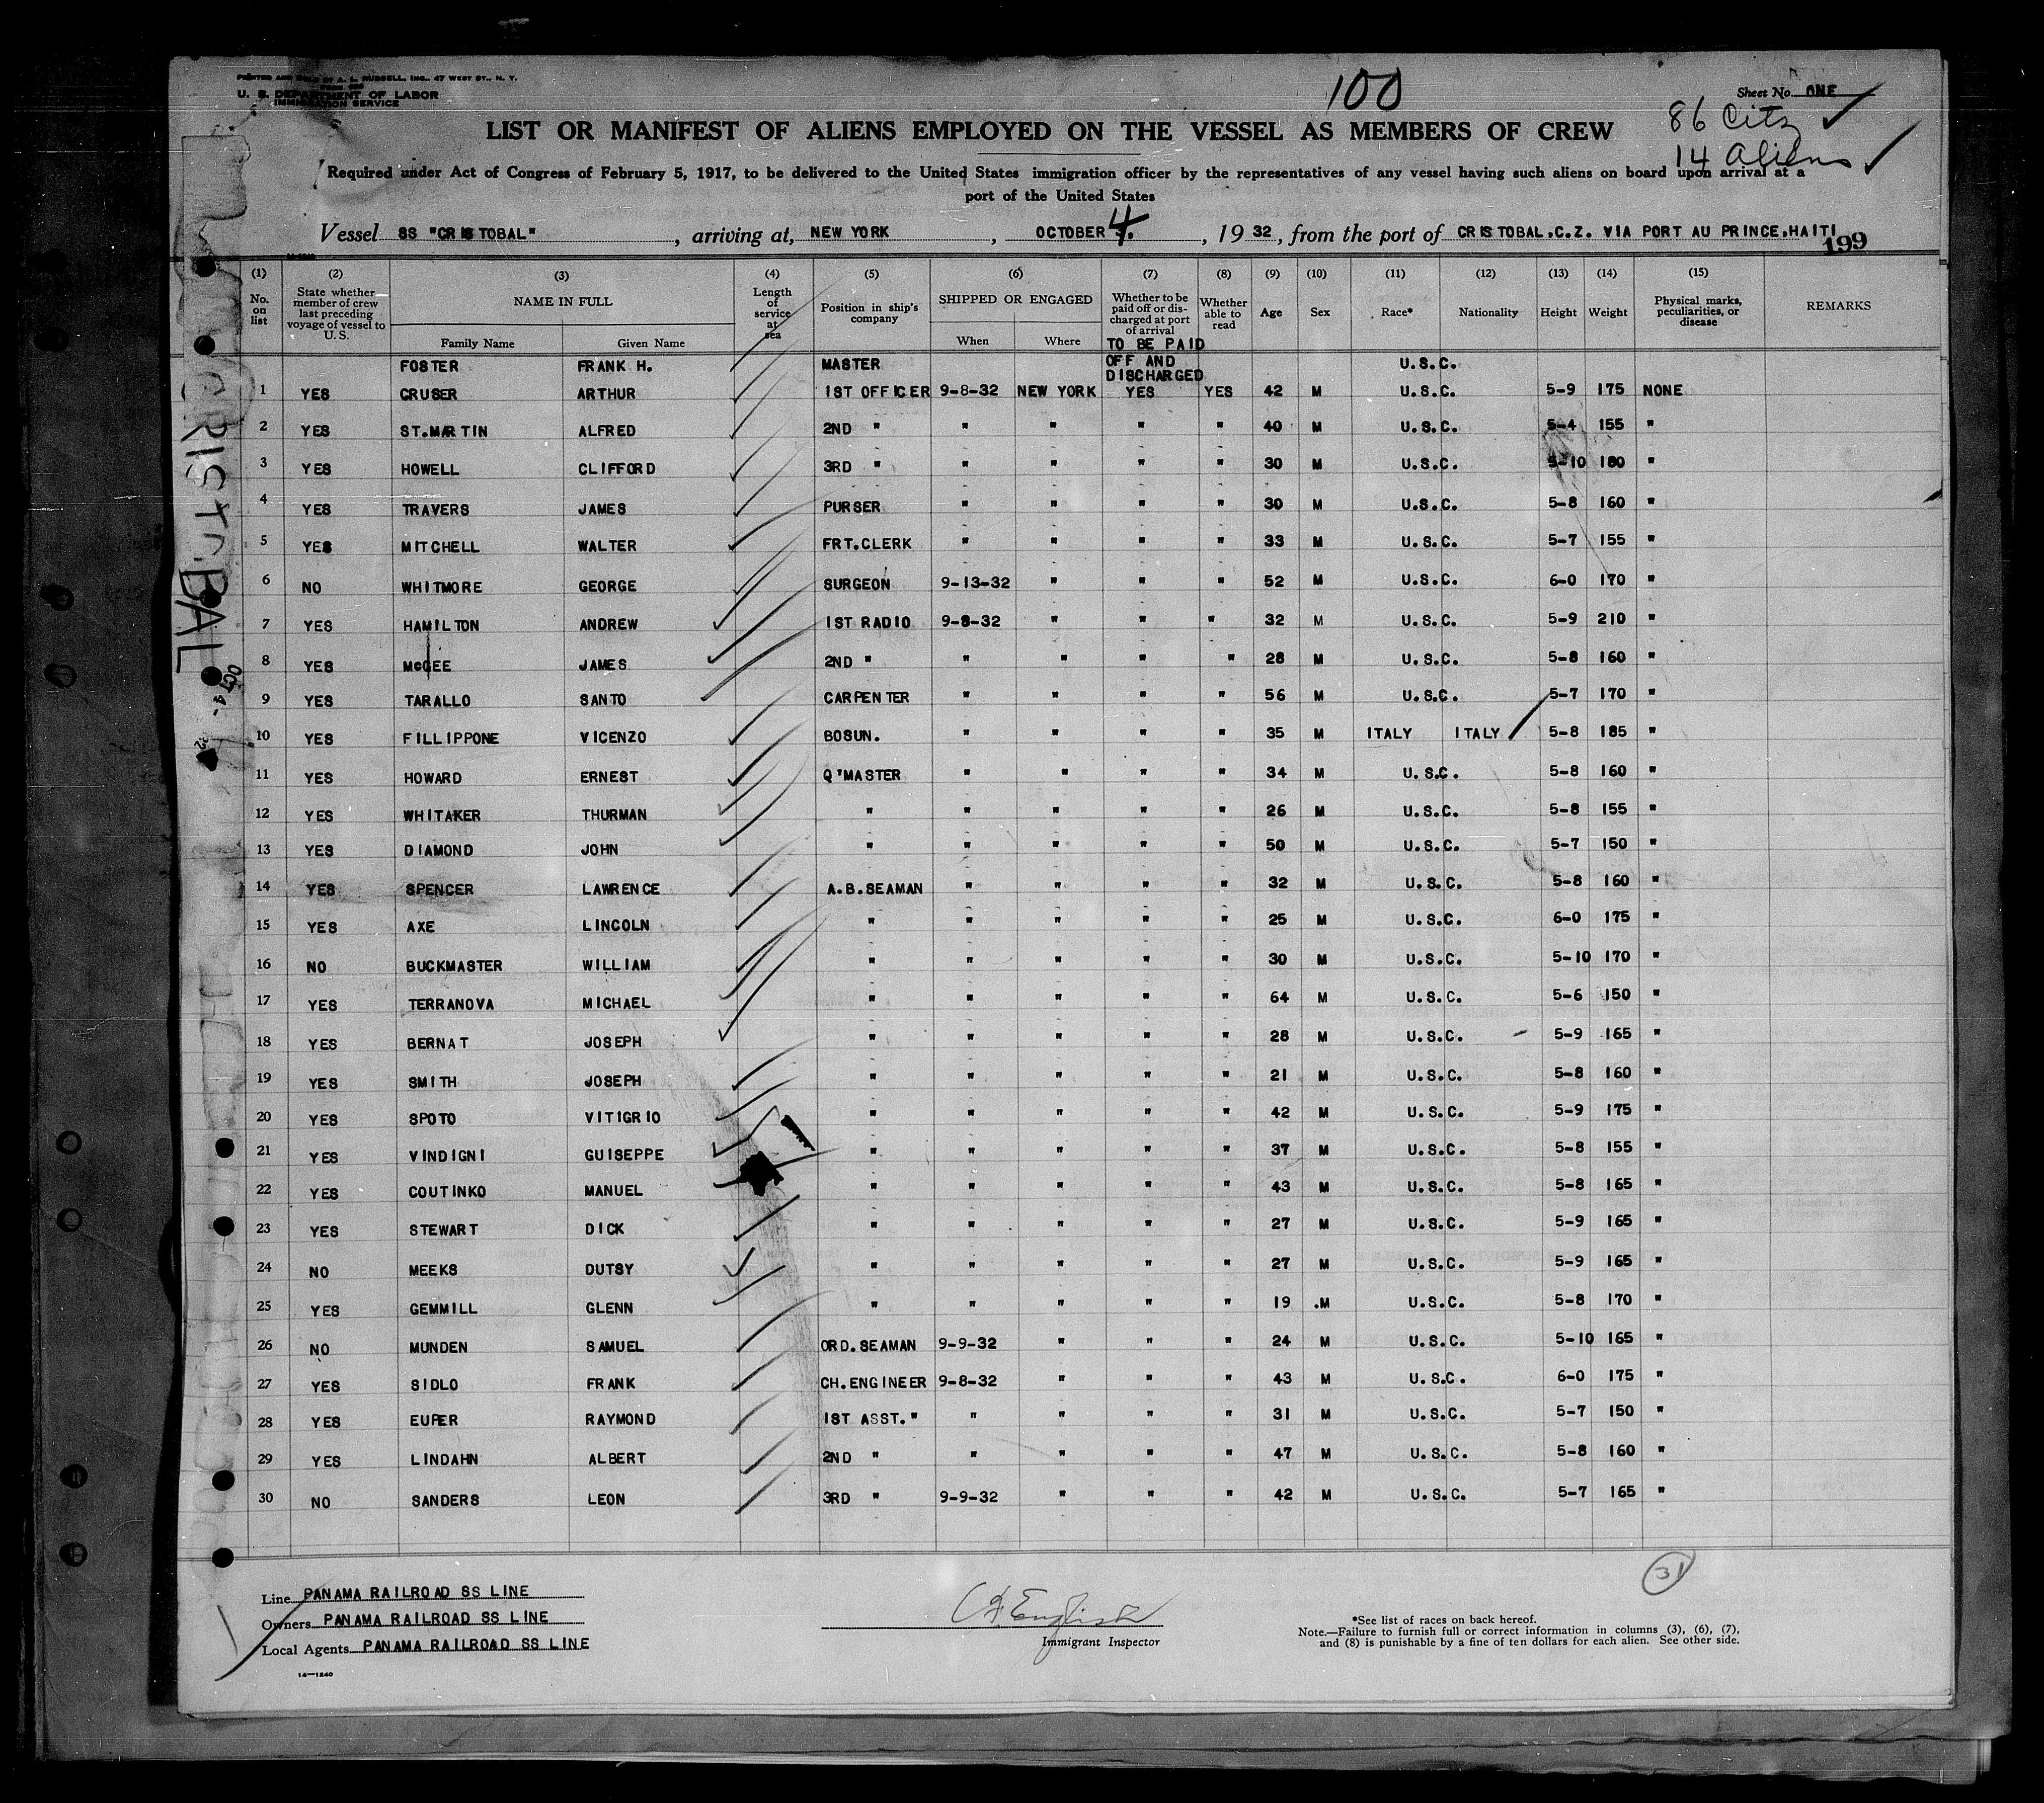 PRINTED AND SOLD BY A. L. RUSSELL, INC., 47 WEST ST., N. Y.
U. S. DEPARTMENT OF LABOR
IMMIGRATION SERVICE
100
Sheet No. ONE
86 Citz
14 Aliens
LIST OR MANIFEST OF ALIENS EMPLOYED ON THE VESSEL AS MEMBERS OF CREW
Required under Act of Congress of February 5, 1917, to be delivered to the United States immigration officer by the representatives of any vessel having such aliens on board upon arrival at a
port of the United States
Vessel SS "CRISTOBAL", arriving at, NEW YORK, OCTOBER 4., 1932, from the port of CRISTOBAL.C.Z. VIA PORT AU PRINCE.HAITI
199
(1) (2) (3) (4) (5) (6) (7) (8) (9) (10) (11) (12) (13) (14) (15)
No. on list | State whether member of crew last preceding voyage of vessel to U.S. | NAME IN FULL Family Name Given Name | Length of service at sea | Position in ship's company | SHIPPED OR ENGAGED When Where | Whether to be paid off or discharged at port of arrival | Whether able to read | Age | Sex | Race* | Nationality | Height | Weight | Physical marks, peculiarities, or disease | REMARKS
TO BE PAID OFF AND DISCHARGED
FOSTER FRANK H. MASTER U.S.C.
1 YES CRUSER ARTHUR 1ST OFFICER 9-8-32 NEW YORK YES YES 42 M U.S.C. 5-9 175 NONE
2 YES ST.MARTIN ALFRED 2ND " " " " " 40 M U.S.C. 5-4 155 "
3 YES HOWELL CLIFFORD 3RD " " " " " 30 M U.S.C. 5-10 180 "
4 YES TRAVERS JAMES PURSER " " " " 30 M U.S.C. 5-8 160 "
5 YES MITCHELL WALTER FRT.CLERK " " " " 33 M U.S.C. 5-7 155 "
6 NO WHITMORE GEORGE SURGEON 9-13-32 " " " 52 M U.S.C. 6-0 170 "
7 YES HAMILTON ANDREW 1ST RADIO 9-8-32 " " " 32 M U.S.C. 5-9 210 "
8 YES McGEE JAMES 2ND " " " " " 28 M U.S.C. 5-8 160 "
9 YES TARALLO SANTO CARPENTER " " " " 56 M U.S.C. 5-7 170 "
10 YES FILLIPPONE VICENZO BOSUN. " " " " 35 M ITALY ITALY 5-8 185 "
11 YES HOWARD ERNEST Q'MASTER " " " " 34 M U.S.C. 5-8 160 "
12 YES WHITAKER THURMAN " " " " " 26 M U.S.C. 5-8 155 "
13 YES DIAMOND JOHN " " " " " 50 M U.S.C. 5-7 150 "
14 YES SPENCER LAWRENCE A.B.SEAMAN " " " " 32 M U.S.C. 5-8 160 "
15 YES AXE LINCOLN " " " " " 25 M U.S.C. 6-0 175 "
16 NO BUCKMASTER WILLIAM " " " " " 30 M U.S.C. 5-10 170 "
17 YES TERRANOVA MICHAEL " " " " " 64 M U.S.C. 5-6 150 "
18 YES BERNAT JOSEPH " " " " " 28 M U.S.C. 5-9 165 "
19 YES SMITH JOSEPH " " " " " 21 M U.S.C. 5-8 160 "
20 YES SPOTO VITIGRIO " " " " " 42 M U.S.C. 5-9 175 "
21 YES VINDIGNI GUISEPPE " " " " " 37 M U.S.C. 5-8 155 "
22 YES COUTINKO MANUEL " " " " " 43 M U.S.C. 5-8 165 "
23 YES STEWART DICK " " " " " 27 M U.S.C. 5-9 165 "
24 NO MEEKS DUTSY " " " " " 27 M U.S.C. 5-9 165 "
25 YES GEMMILL GLENN " " " " " 19 .M U.S.C. 5-8 170 "
26 NO MUNDEN SAMUEL ORD.SEAMAN 9-9-32 " " " 24 M U.S.C. 5-10 165 "
27 YES SIDLO FRANK CH.ENGINEER 9-8-32 " " " 43 M U.S.C. 6-0 175 "
28 YES EUPER RAYMOND 1ST ASST." " " " " 31 M U.S.C. 5-7 150 "
29 YES LINDAHN ALBERT 2ND " " " " " 47 M U.S.C. 5-8 160 "
30 NO SANDERS LEON 3RD " 9-9-32 " " " 42 M U.S.C. 5-7 165 "
CRISTOBAL
OCT 4- 32
31
Line PANAMA RAILROAD SS LINE
Owners PANAMA RAILROAD SS LINE
Local Agents PANAMA RAILROAD SS LINE
14—1240
English
Immigrant Inspector
*See list of races on back hereof.
Note.—Failure to furnish full or correct information in columns (3), (6), (7),
and (8) is punishable by a fine of ten dollars for each alien. See other side.